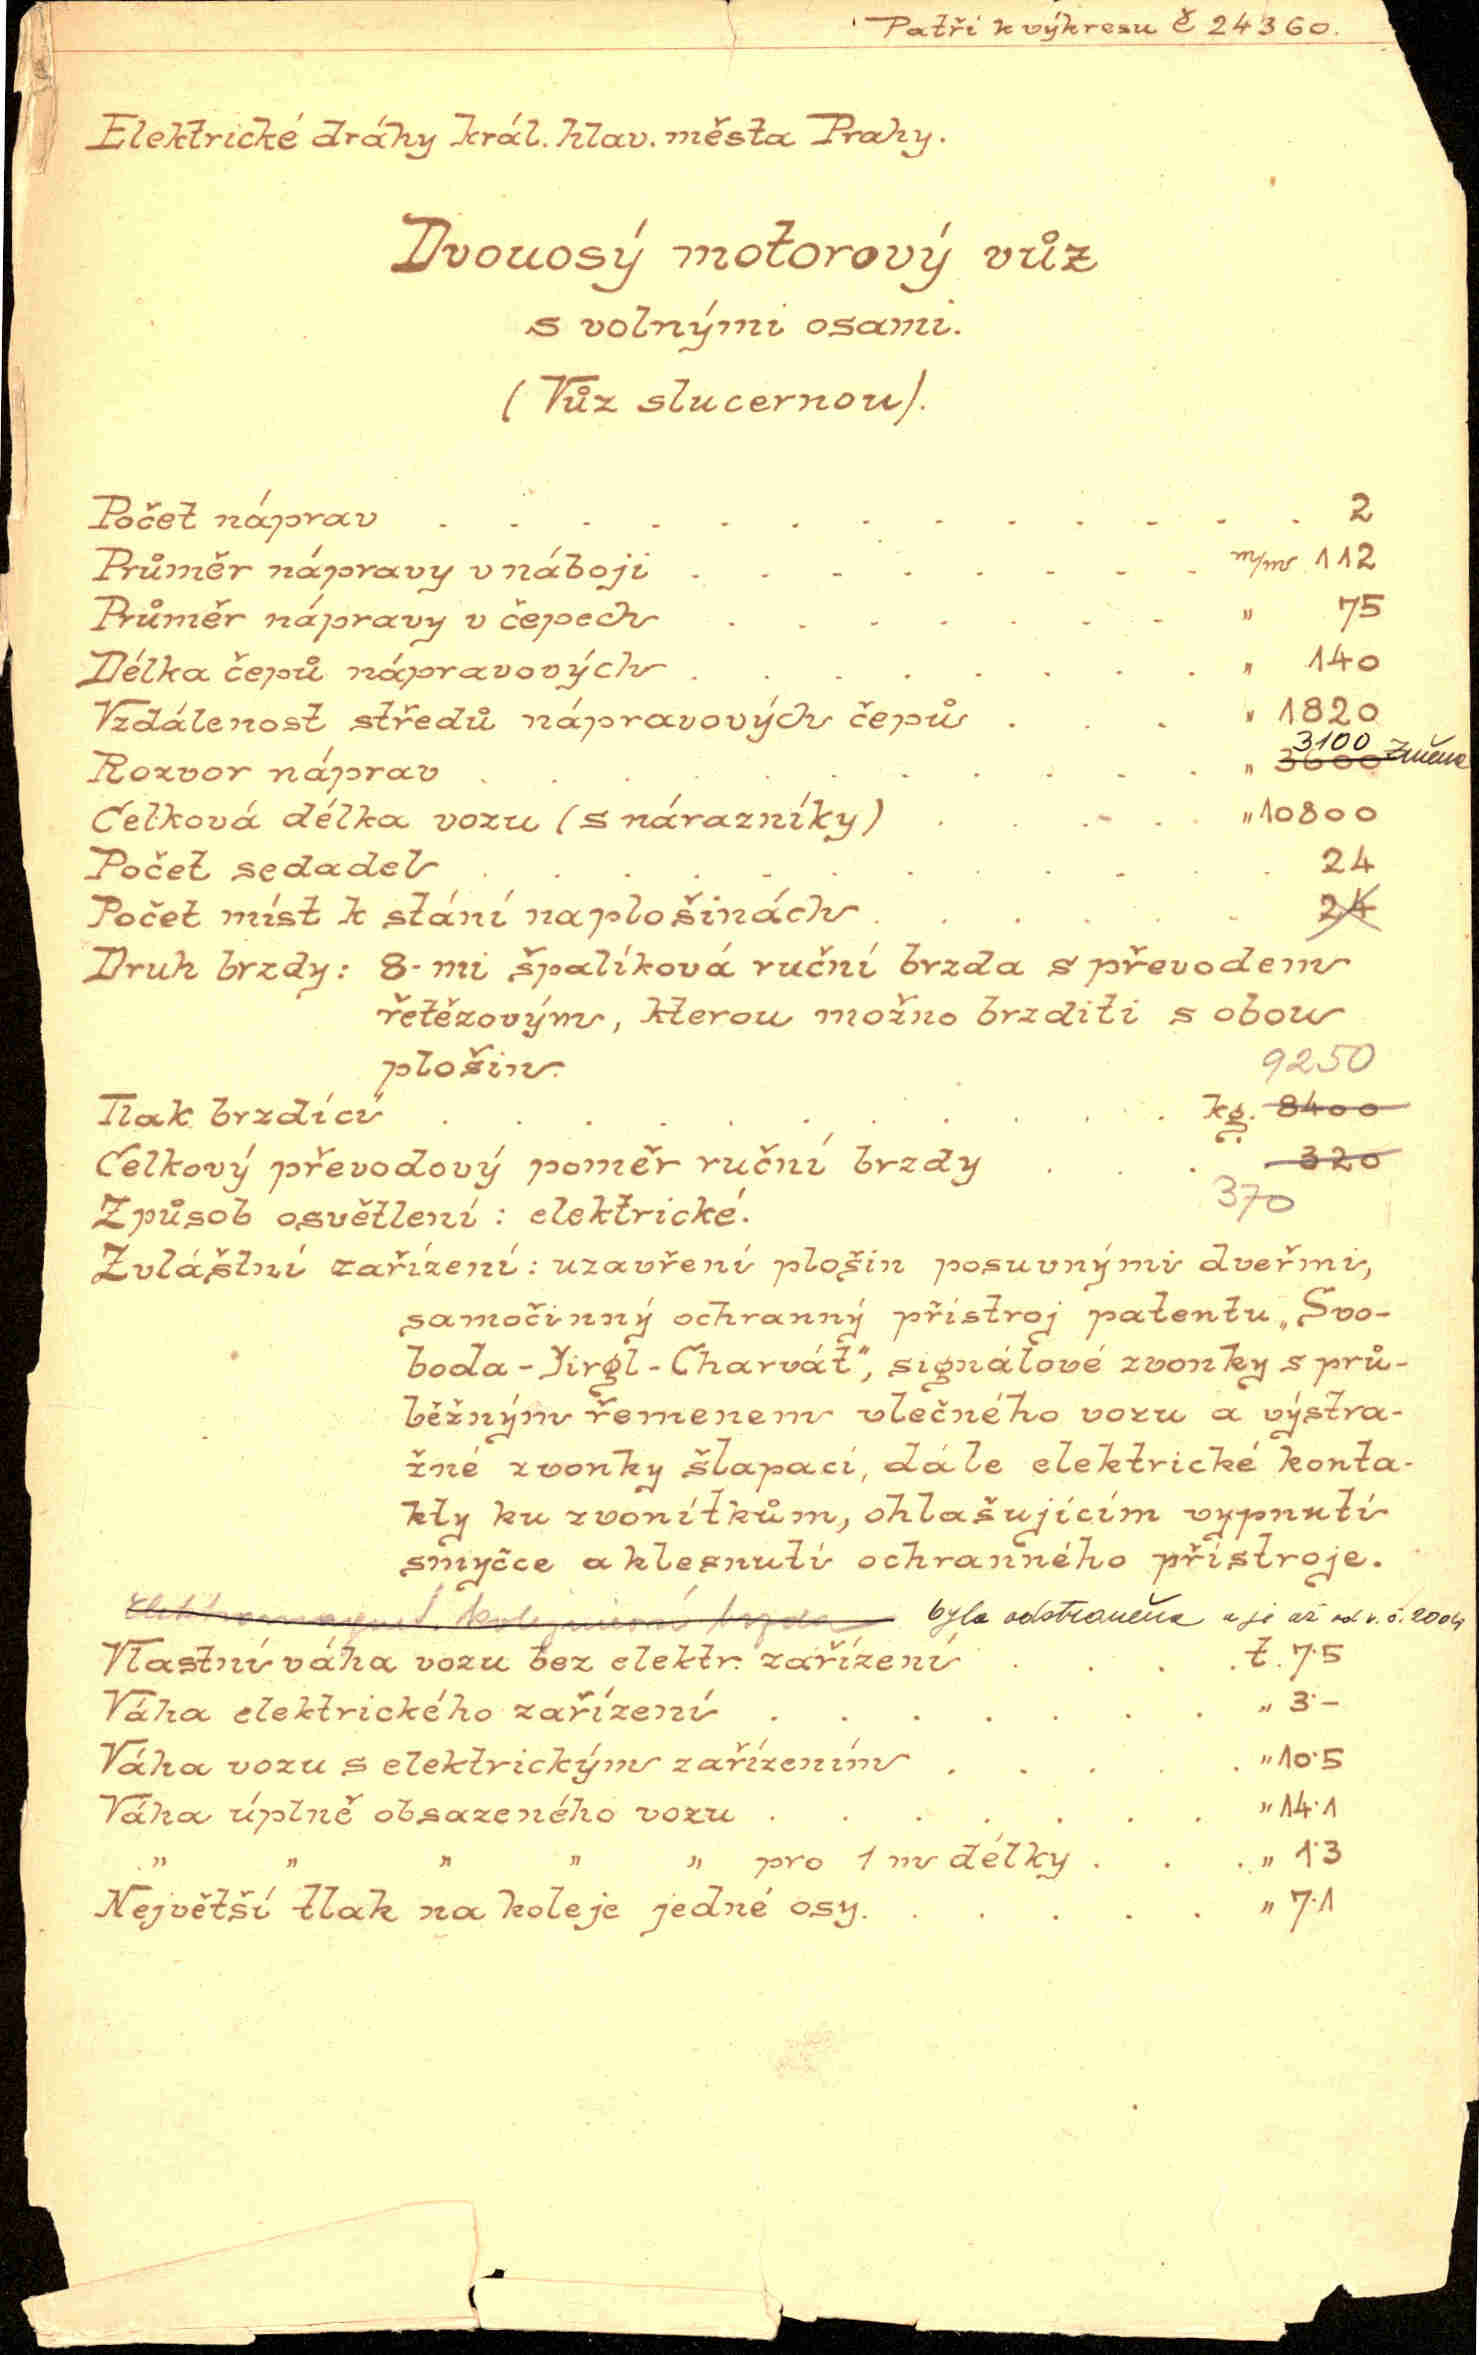 Patří k výkresu č 24360.
Elektrické dráhy král. hlav. města Prahy.
Dvouosý motorový vůz
s volnými osami.
(Vůz s lucernou).
Počet náprav . . . . . . . . . . . . . 2
Průměr nápravy v náboji . . . . . . . . m/m 112
Průměr nápravy v čepech . . . . . . . " 75
Délka čepů nápravových . . . . . . . . " 140
Vzdálenost středů nápravových čepů . . . " 1820
3100
Rozvor náprav . . . . . . . . . . . " 3600 změna
Celková délka vozu (s nárazníky) . . . . . " 10800
Počet sedadel . . . . . . . . . . . . 24
Počet míst k stání na plošinách . . . . . . 24
Druh brzdy: 8-mi špalíková ruční brzda s převodem
řetězovým, kterou možno brzditi s obou
plošin.
9250
Tlak brzdící . . . . . . . . . . . kg. 8400
Celkový převodový poměr ruční brzdy . . . 320
370
Způsob osvětlení: elektrické.
Zvláštní zařízení: uzavření plošin posuvnými dveřmi,
samočinný ochranný přístroj patentu „Svo-
boda-Jirgl-Charvát", signálové zvonky s prů-
běžným řemenem vlečného vozu a výstra-
žné zvonky šlapací, dále elektrické konta-
kty ku zvonítkům, ohlašujícím vypnutí
smyčce a klesnutí ochranného přístroje.
Elektromagnet. kolejnicová brzda byla odstraněna a je až od v. č. 2004
Vlastní váha vozu bez elektr. zařízení . . . . t. 7·5
Váha elektrického zařízení . . . . . . . " 3·–
Váha vozu s elektrickým zařízením . . . . . " 10·5
Váha úplně obsazeného vozu . . . . . . . " 14·1
" " " " " pro 1 m délky . . . " 1·3
Největší tlak na koleje jedné osy. . . . . . " 7·1